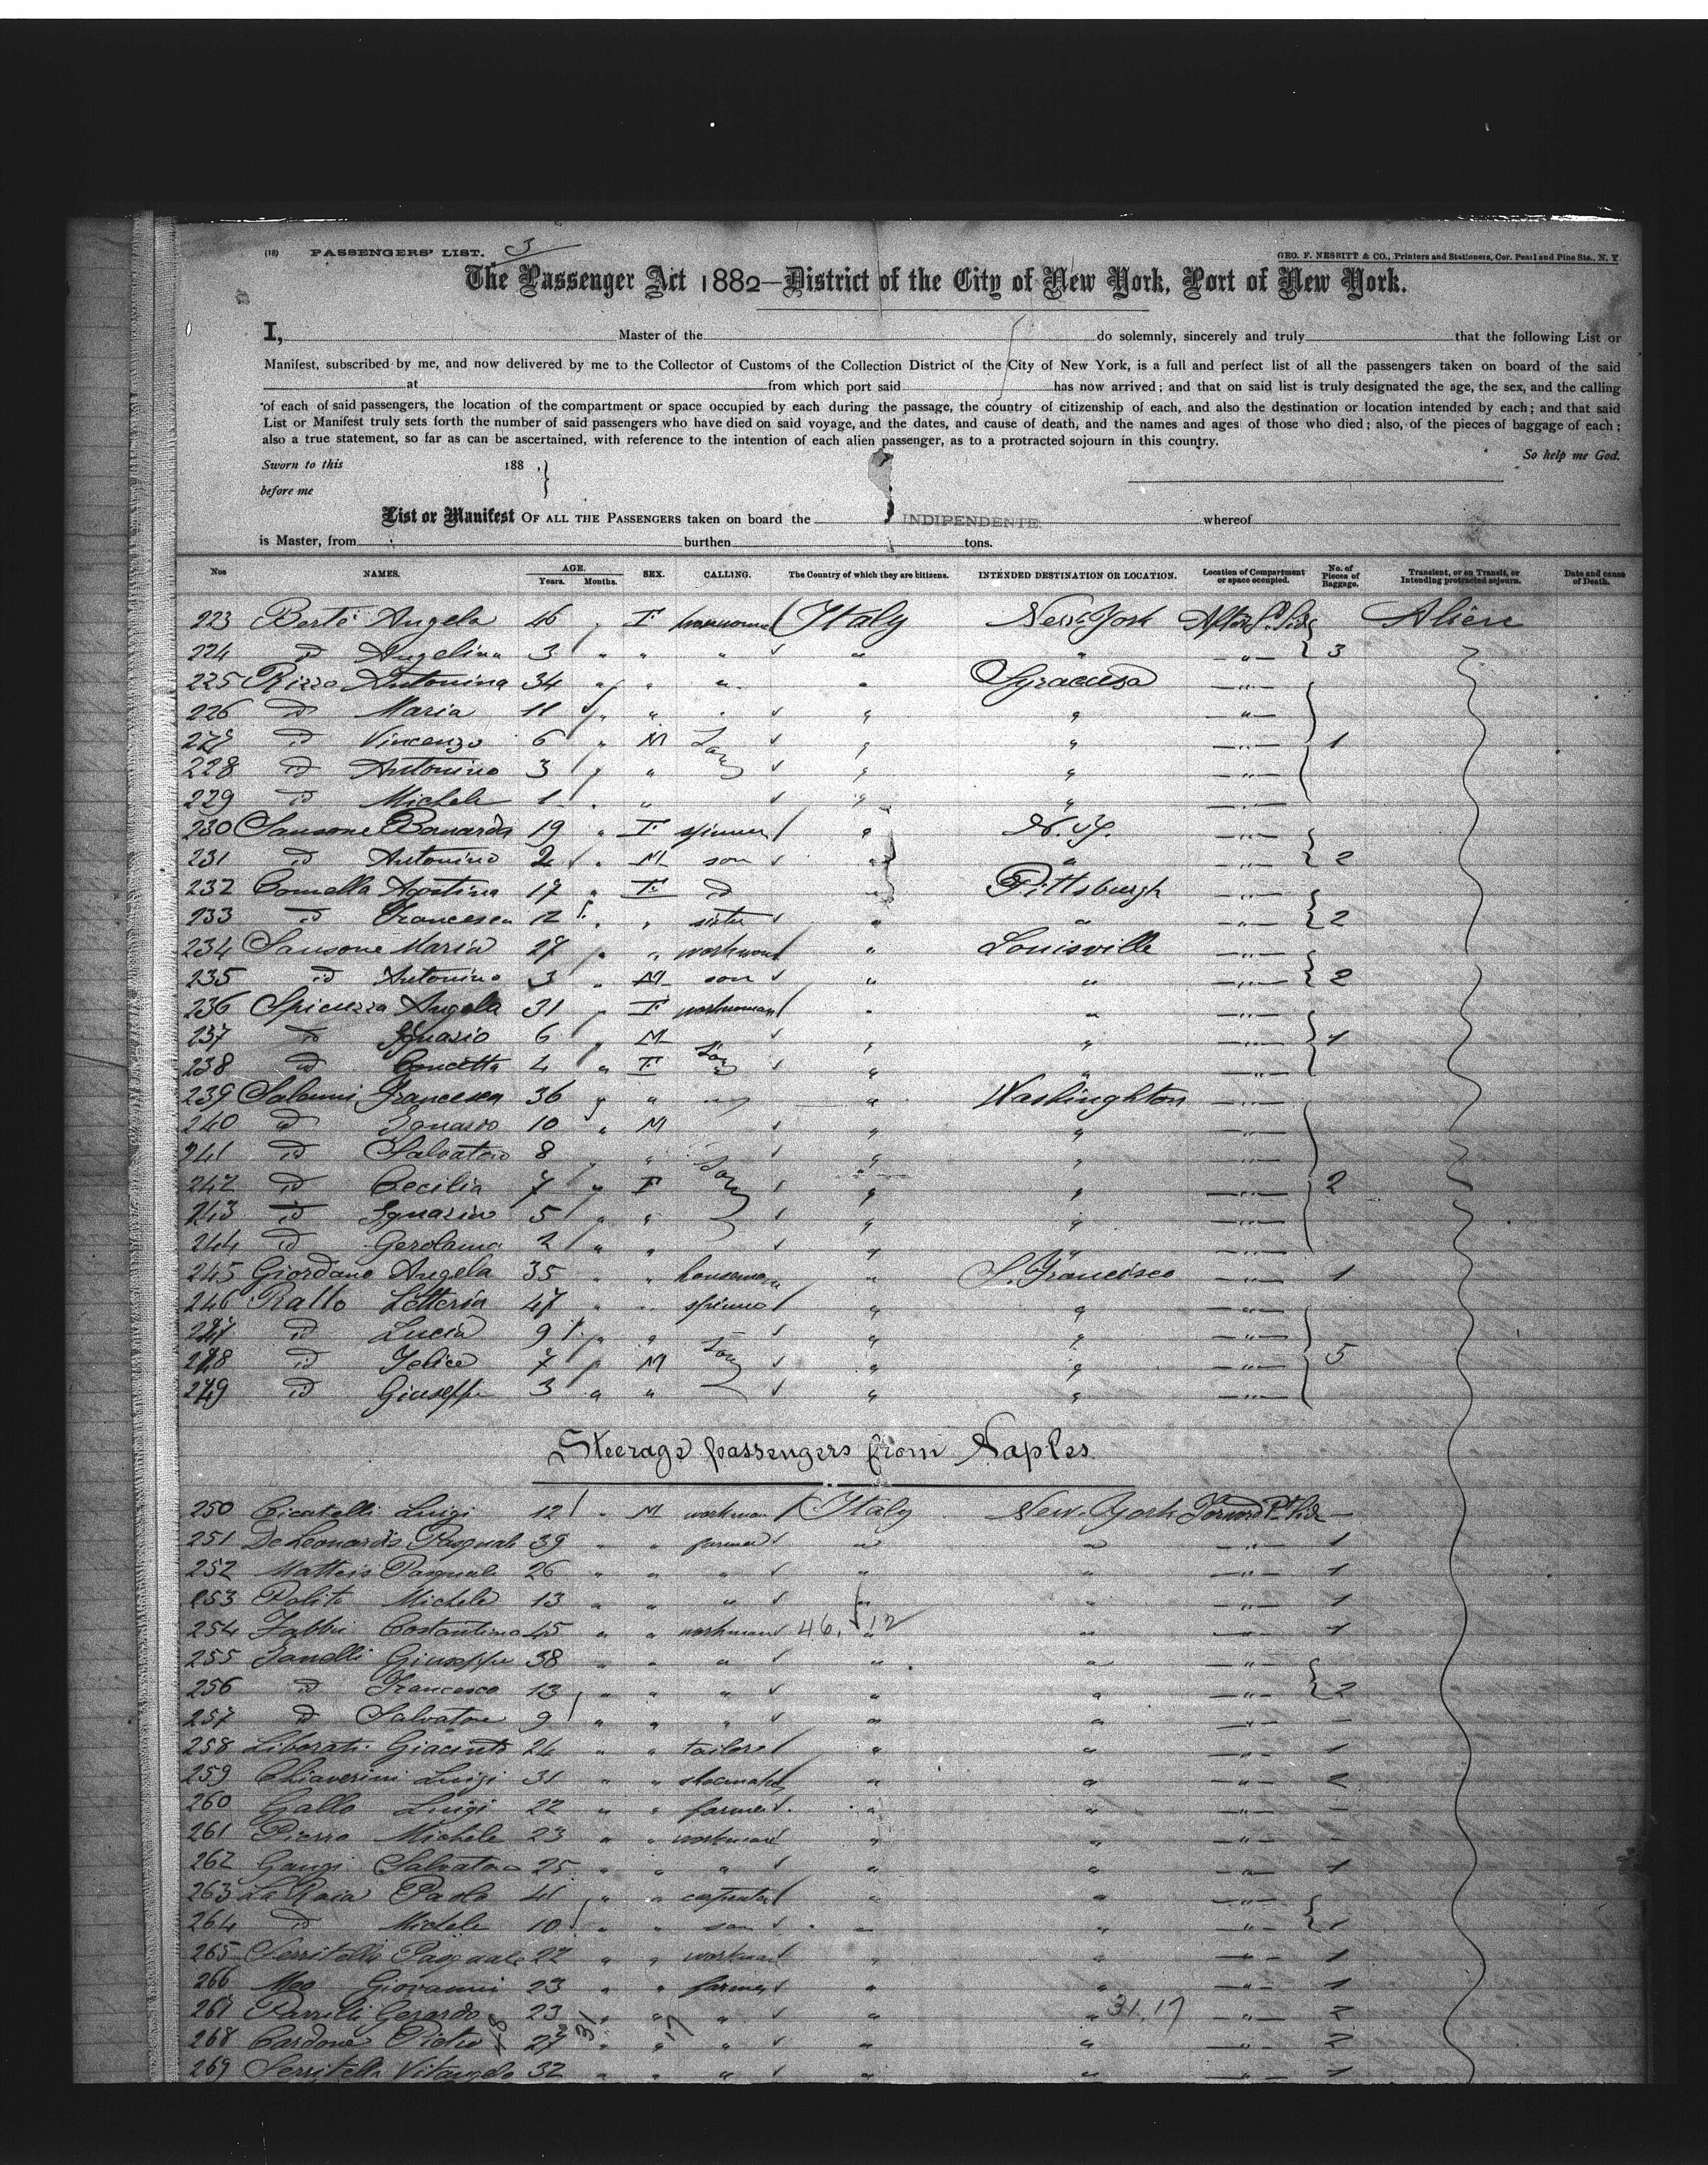 (18) PASSENGERS' LIST. 3
GEO. F. NESBITT & CO., Printers and Stationers, Cor. Pearl and Pine Sts., N. Y.
The Passenger Act 1882—District of the City of New York, Port of New York.
I, Master of the do solemnly, sincerely and truly that the following List or
Manifest, subscribed by me, and now delivered by me to the Collector of Customs of the Collection District of the City of New York, is a full and perfect list of all the passengers taken on board of the said
at from which port said has now arrived; and that on said list is truly designated the age, the sex, and the calling
of each of said passengers, the location of the compartment or space occupied by each during the passage, the country of citizenship of each, and also the destination or location intended by each; and that said
List or Manifest truly sets forth the number of said passengers who have died on said voyage, and the dates, and cause of death, and the names and ages of those who died; also, of the pieces of baggage of each;
also a true statement, so far as can be ascertained, with reference to the intention of each alien passenger, as to a protracted sojourn in this country.
So help me God.
Sworn to this 188 .
before me
List or Manifest OF ALL THE PASSENGERS taken on board the INDIPENDENTE. whereof
is Master, from burthen tons.
Nos NAMES. AGE. Years. Months. SEX. CALLING. The Country of which they are citizens. INTENDED DESTINATION OR LOCATION. Location of Compartment or space occupied. No. of Pieces of Baggage. Transient, or on Transit, or Intending protracted sojourn. Date and cause of Death.
223 Berté Angela 46 " F Italy New York Alien
224 id Angelina 3 " " " " " — " — 3
225 Rizzo Antonina 34 " " " " Syracusa — " —
226 id Maria 11 " " " " " — " —
227 id Vincenzo 6 " M " " — " — 1
228 id Antonino 3 " " " " — " —
229 id Michele 1 " " " " — " —
230 Sansone Bernarda 19 " F spinner " N. Y. — " —
231 id Antonino 2 " M son " " — " — 2
232 Comella Agostina 17 " F id " Pittsburgh — " —
233 id Francesca 12 " " sister " " — " — 2
234 Sansone Maria 27 " " " Louisville — " —
235 id Antonino 3 " M son " " — " — 2
236 Spicuzza Angela 31 " F workwoman " " — " —
237 id Ignazio 6 " M " " — " — 1
238 id Concetta 4 " F " " — " —
239 Francesca 36 " " " " Washinghton — " —
240 id Ignazio 10 " M " " — " —
241 id Salvatore 8 " " " " — " —
242 id Cecilia 7 " F " " — " — 2
243 id Ignazia 5 " " " " — " —
244 id Gerolama 2 " " " " — " —
245 Giordano Angela 35 " " " S. Francisco — " — 1
246 Rallo Letteria 47 " " " " — " —
247 id Lucia 9 " " " " — " —
248 id Felice 7 " M " " — " — 5
249 id Giuseppe 3 " " " " — " —
Steerage passengers from Naples
250 Cicatelli Luigi 12 " M workman Italy New York Forward —
251 De Leonardis Pasquale 39 " " farmer " " — " — 1
252 Matteis Pasquale 26 " " " " " — " — 1
253 Polito Michele 13 " " " " " — " — 1
254 Fabbri Costantino 45 " " workman 46. 12 " " — " — 1
255 Giuseppe 38 " " " " " — " —
256 id Francesco 13 " " " " " — " — 2
257 id Salvatore 9 " " " " " — " — —
258 Liberati Giacinto 24 " " tailor " " — " — 1
259 Chiaverini Luigi 31 " " shoemaker " " — " — 2
260 Gallo Luigi 22 " " farmer " " — " — —
261 Michele 23 " " workman " " — " — —
262 Gangi Salvatore 25 " " " " " — " — 1
263 La Raia Paolo 41 " " carpenter " " — " —
264 id Michele 10 " " son " " — " — 1
265 Serritella Pasquale 22 " " workman " " — " — 1
266 Meo Giovanni 23 " " farmer " " — " — 1
267 Gerardo 23 " " " " " 31,17 — " — 2
268 Cardone Pietro 27 " " " " " — " — 2
269 Serritella Vitangelo 32 " " " " " — " — 1
48 31 17